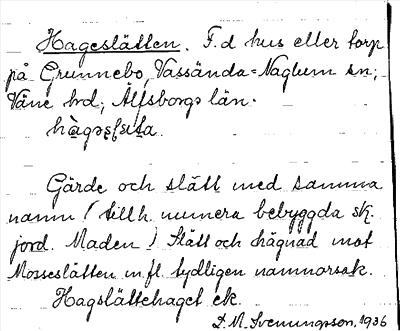 Hageslätten. F.d hus eller torp
på Grunnebo, Vassända=Naglum sn;
Väne hd; Älfsborgs län.
Gärde och slätt med samma
namn (tillh. numera bebyggda sk.
jord. Maden) Slätt och hägnad mot
Mosseslätten m fl. tydligen namnorsak.
Hagslättehaget ek.
D. M. Svenungsson, 1936